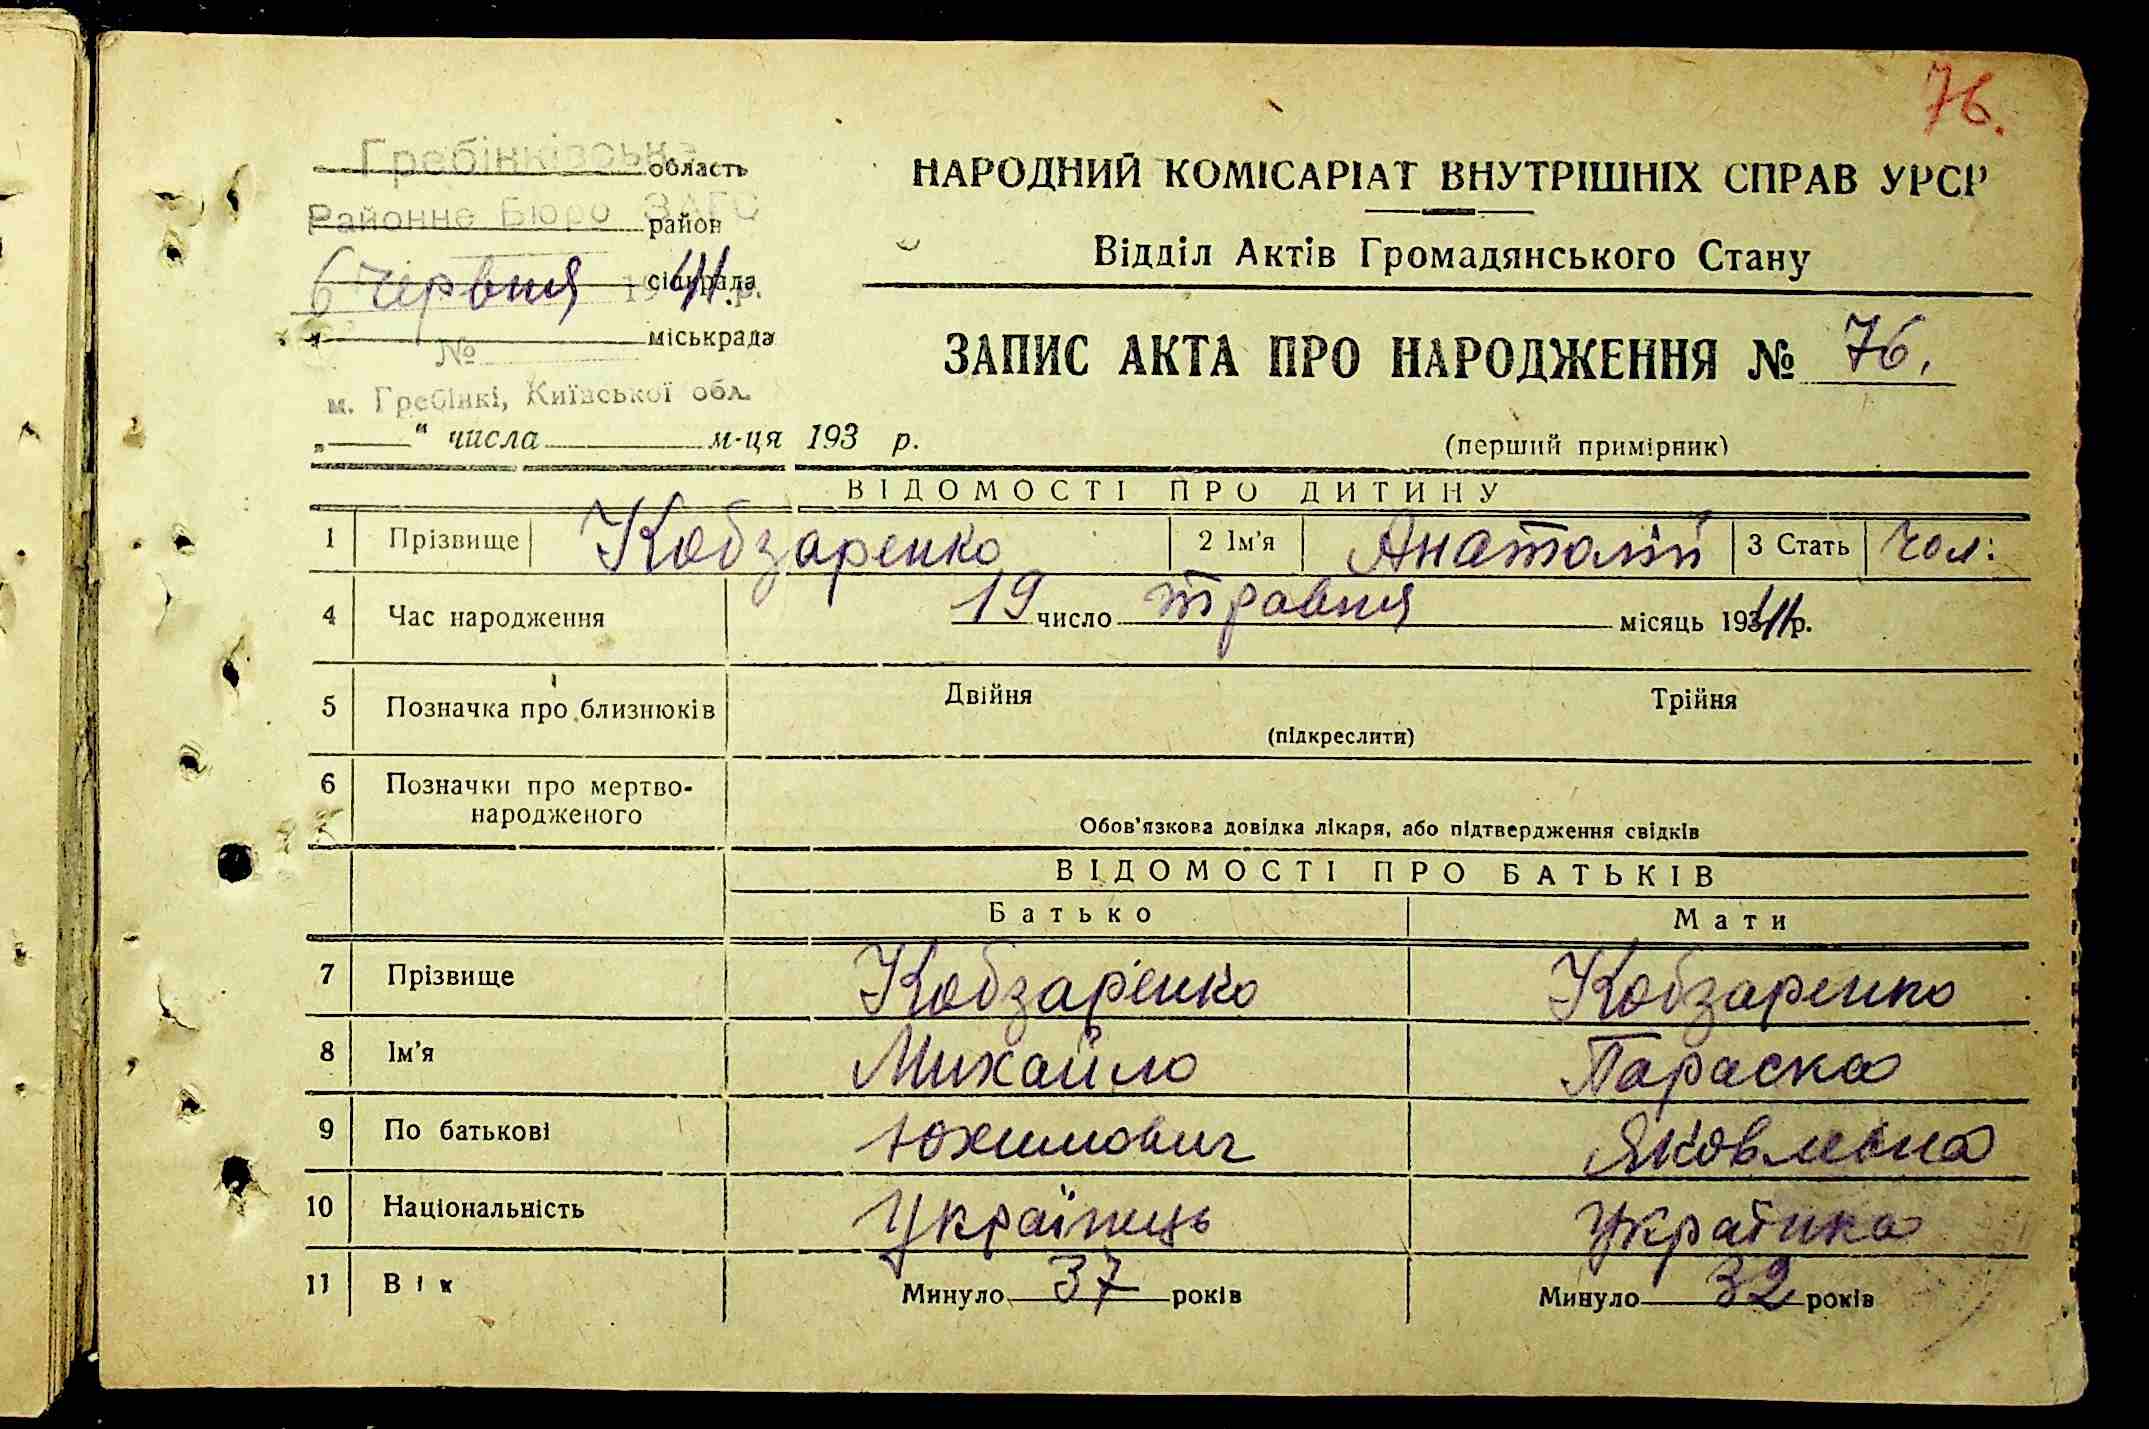 76.
Гребінківське область
Районне Бюро ЗАГС район
6 червня 1941 р. сільрада
міськрада
№
м. Гребінкі, Київської обл.
„ “ числа м-ця 193 р.
НАРОДНИЙ КОМІСАРІАТ ВНУТРІШНІХ СПРАВ УРСР
Відділ Актів Громадянського Стану
ЗАПИС АКТА ПРО НАРОДЖЕННЯ № 76.
(перший примірник)
ВІДОМОСТІ ПРО ДИТИНУ
1 Прізвище Кобзаренко 2 Ім'я Анатолій 3 Стать чол:
4 Час народження 19 число травня місяць 1941 р.
5 Позначка про близнюків Двійня Трійня
(підкреслити)
6 Позначки про мертво-
народженого
Обов'язкова довідка лікаря, або підтвердження свідків
ВІДОМОСТІ ПРО БАТЬКІВ
Батько Мати
7 Прізвище Кобзаренко Кобзаренко
8 Ім'я Михайло Параска
9 По батькові Юхимович Яковлевна
10 Національність Українець Українка
11 Вік Минуло 37 років Минуло 32 років